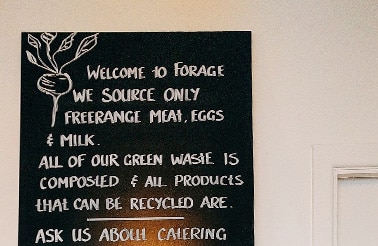 WELCOME to FORAGE
WE SOURCE ONLY
FREERANGE MEAT, EGGS
& MILK.
ALL OF OUR GREEN WASTE IS
COMPOSTED & ALL PRODUCTS
tHAT CAN BE RECYCLED ARE.
ASK US ABOUT CATERING